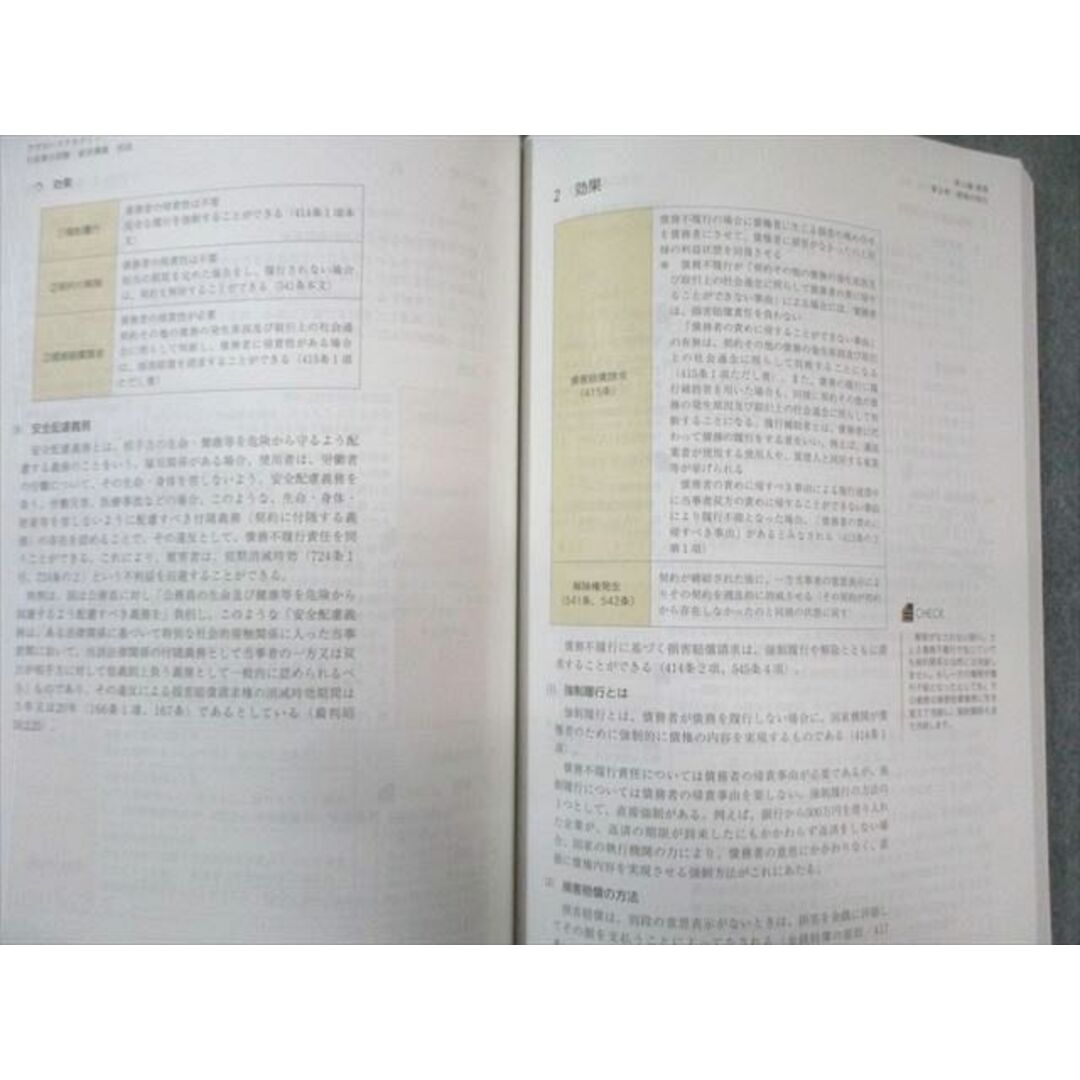 効果
①強制履行
債務者の帰責性は不要
完全な履行を強制することができる（414条1項本
文）
②契約の解除
債務者の帰責性は不要
相当の期間を定めた催告をし、履行されない場合
は、契約を解除することができる（541条本文）
③損害賠償請求
債務者の帰責性が必要
契約その他の債務の発生原因及び取引上の社会通
念に照らして判断し、債務者に帰責性がある場合
は、損害賠償を請求することができる（415条1項
ただし書）
安全配慮義務
安全配慮義務とは、相手方の生命・健康等を危険から守るよう配
慮する義務のことをいう。雇用関係がある場合、使用者は、労働者
の労働について、その生命・身体を害しないよう、安全配慮義務を
負う。労働災害、医療事故などの場合、このような、生命・身体・
財産等を害しないように配慮すべき付随義務（契約に付随する義
務）の存在を認めることで、その違反として、債務不履行責任を問
うことができる。これにより、被害者は、短期消滅時効（724条1
号、724条の2）という不利益を回避することができる。
判例は、国は公務員に対し「公務員の生命及び健康等を危険から
保護するよう配慮すべき義務を」負担し、このような「安全配慮義
務は、ある法律関係に基づいて特別な社会的接触関係に入った当事
者間において、当該法律関係の付随義務として当事者の一方又は双
方が相手方に対して信義則上負う義務として一般的に認められるべ
き」ものであり、その違反による損害賠償請求権の消滅時効期間は
5年又は20年（166条1項、167条）であるとしている（最判昭
2 効果
損害賠償請求
（415条）
債務不履行の場合に債権者に生じた損害の埋め合せ
を債務者にさせて、債権者に損害がなかったのと同
様の利益状態を回復させる
※ 債務不履行が「契約その他の債務の発生原因及
び取引上の社会通念に照らして債務者の責に帰す
ることができない事由」による場合には、債務者
は、損害賠償責任を負わない
「債務者の責めに帰することができない事由」
の有無は、契約その他の債務の発生原因及び取引
上の社会通念に照らして判断することになる
（415条1項ただし書）。また、債務の履行に履
行補助者を用いた場合も、同様に契約その他の債
務の発生原因及び取引上の社会通念に照らして判
断することになる。履行補助者とは、債務者に代
わって債務の履行をする者をいい、例えば、運送
業者が使用する使用人や、賃借人と同居する家族
等が挙げられる
債務者の責めに帰すべき事由による履行遅滞中
に当事者双方の責めに帰することができない事由
により履行不能となった場合、「債務者の責めに
帰すべき事由」があるとみなされる（413条の2
第1項）
解除権発生
（541条、542条）
契約が締結された後に、一方当事者の意思表示によ
りその契約を遡及的に消滅させる（その契約が初め
から存在しなかったのと同様の状態に戻す）
CHECK
債務不履行に基づく損害賠償請求は、強制履行や解除とともに請
求することができる（414条2項、545条4項）。
(1) 強制履行とは
強制履行とは、債務者が債務を履行しない場合に、国家機関が債
権者のために強制的に債権の内容を実現するものである（414条1
項）。
債務不履行責任については債務者の帰責事由が必要であるが、強
制履行については債務者の帰責事由を要しない。強制履行の方法の
1つとして、直接強制がある。例えば、銀行から500万円を借り入れ
た企業が、返済の期限が到来したにもかかわらず返済をしない場
合、国家の執行機関の力により、債務者の意思にかかわりなく、直
接に債権内容を実現させる強制方法がこれにあたる。
(2) 損害賠償の方法
損害賠償は、別段の意思表示がないときは、損害を金銭に評価し
てその額を支払うことによってなされる（金銭賠償の原則／417